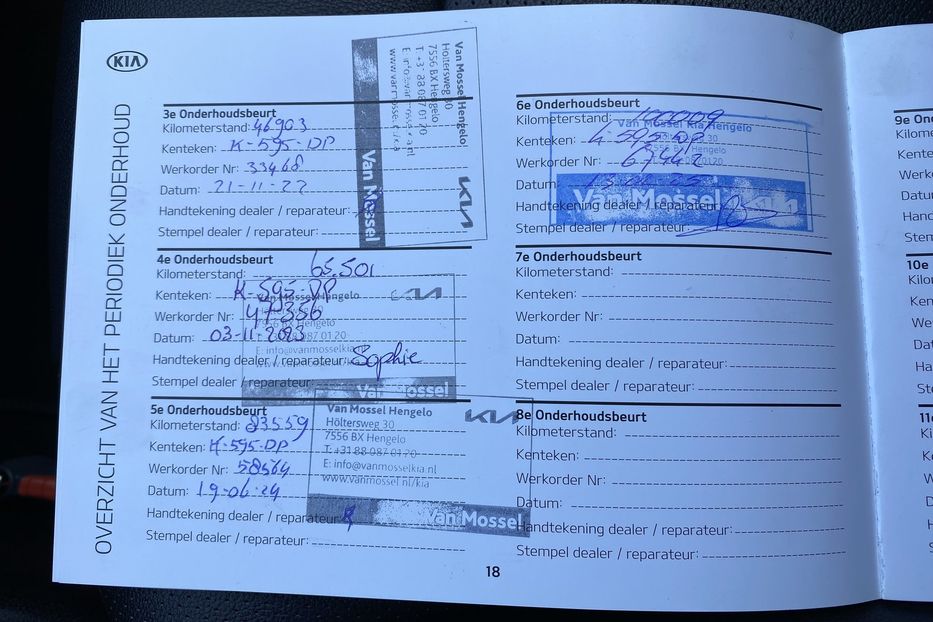 KIA
OVERZICHT VAN HET PERIODIEK ONDERHOUD
3e Onderhoudsbeurt
Kilometerstand: 46903
Kenteken: K-595-DP
Werkorder Nr: 33468
Datum: 21-11-22
Handtekening dealer / reparateur:
Stempel dealer / reparateur:
Van Mossel Hengelo
Höltersweg 30
7556 BX Hengelo
T: +31 88 087 01 20
Van Mossel
KIA
4e Onderhoudsbeurt
Kilometerstand: 65.501
Kenteken: K-595-DP
Werkorder Nr: 47356
Datum: 03-11-2023
Handtekening dealer / reparateur: Sophie
Stempel dealer / reparateur:
Van Mossel Hengelo
KIA
087 01 20
E: info@vanmosselkia
Van Mossel
5e Onderhoudsbeurt
Kilometerstand: 83559
Kenteken: K-595-DP
Werkorder Nr: 58564
Datum: 19-06-24
Handtekening dealer / reparateur:
Stempel dealer / reparateur:
Van Mossel Hengelo
KIA
Höltersweg 30
7556 BX Hengelo
T: +31 88 087 01 20
E: info@vanmosselkia.nl
www.vanmossel.nl/kia
Van Mossel
6e Onderhoudsbeurt
Kilometerstand:
Kenteken: K-595-DP
Werkorder Nr:
Datum:
Handtekening dealer / reparateur:
Stempel dealer / reparateur:
Van Mossel Kia Hengelo
Van Mossel
7e Onderhoudsbeurt
Kilometerstand:
Kenteken:
Werkorder Nr:
Datum:
Handtekening dealer / reparateur:
Stempel dealer / reparateur:
8e Onderhoudsbeurt
Kilometerstand:
Kenteken:
Werkorder Nr:
Datum:
Handtekening dealer / reparateur:
Stempel dealer / reparateur:
18
9e
10e